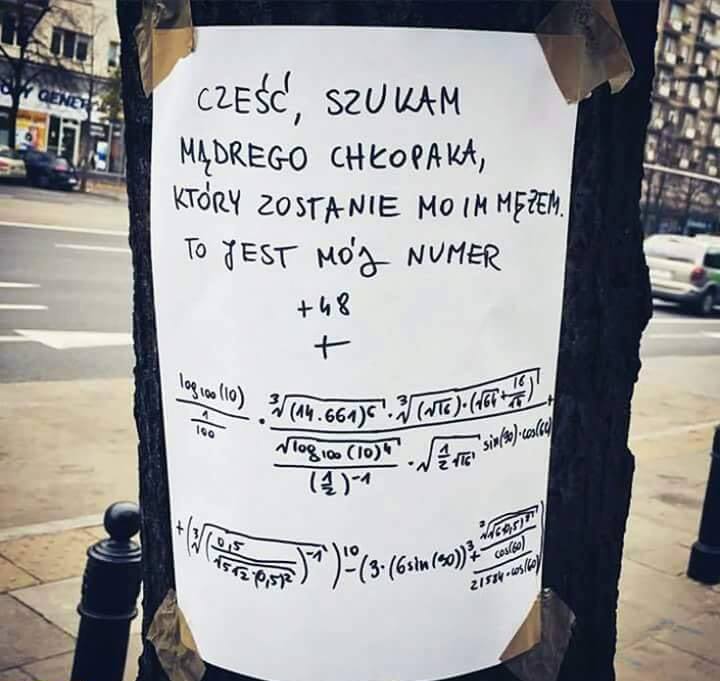 CZEŚĆ, SZUKAM
MĄDREGO CHŁOPAKA,
KTÓRY ZOSTANIE MOIM MĘŻEM.
TO JEST MÓJ NUMER
+48
+
log100(10)/(1/100) · ∛(14.661)⁶ · ∛((√16)·(√64+16/√4)) / (√log100(10)⁴/(1/2)⁻¹ · √(1/2 √16)) sin(90)·cos(60) +
+(∛(0,5/(√512·(0,5)²))⁻¹)¹⁰-(3·(6sin(90))³+
cos(60)
21584·cos(60)